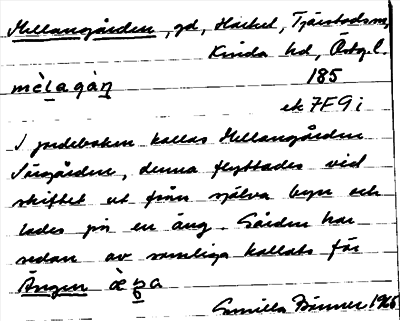 Mellangården, gd, Häckel, Tjärstads sn,
Kinda hd, Östg. l.
185
mèlagàn
ek 7F9i
I jordeboken kallas Mellangården
Sörgården, denna flyttades vid
skiftet ut från själva byn och
lades på en äng. Gården har
sedan av somliga kallats för
Ängen
Gunilla 1966